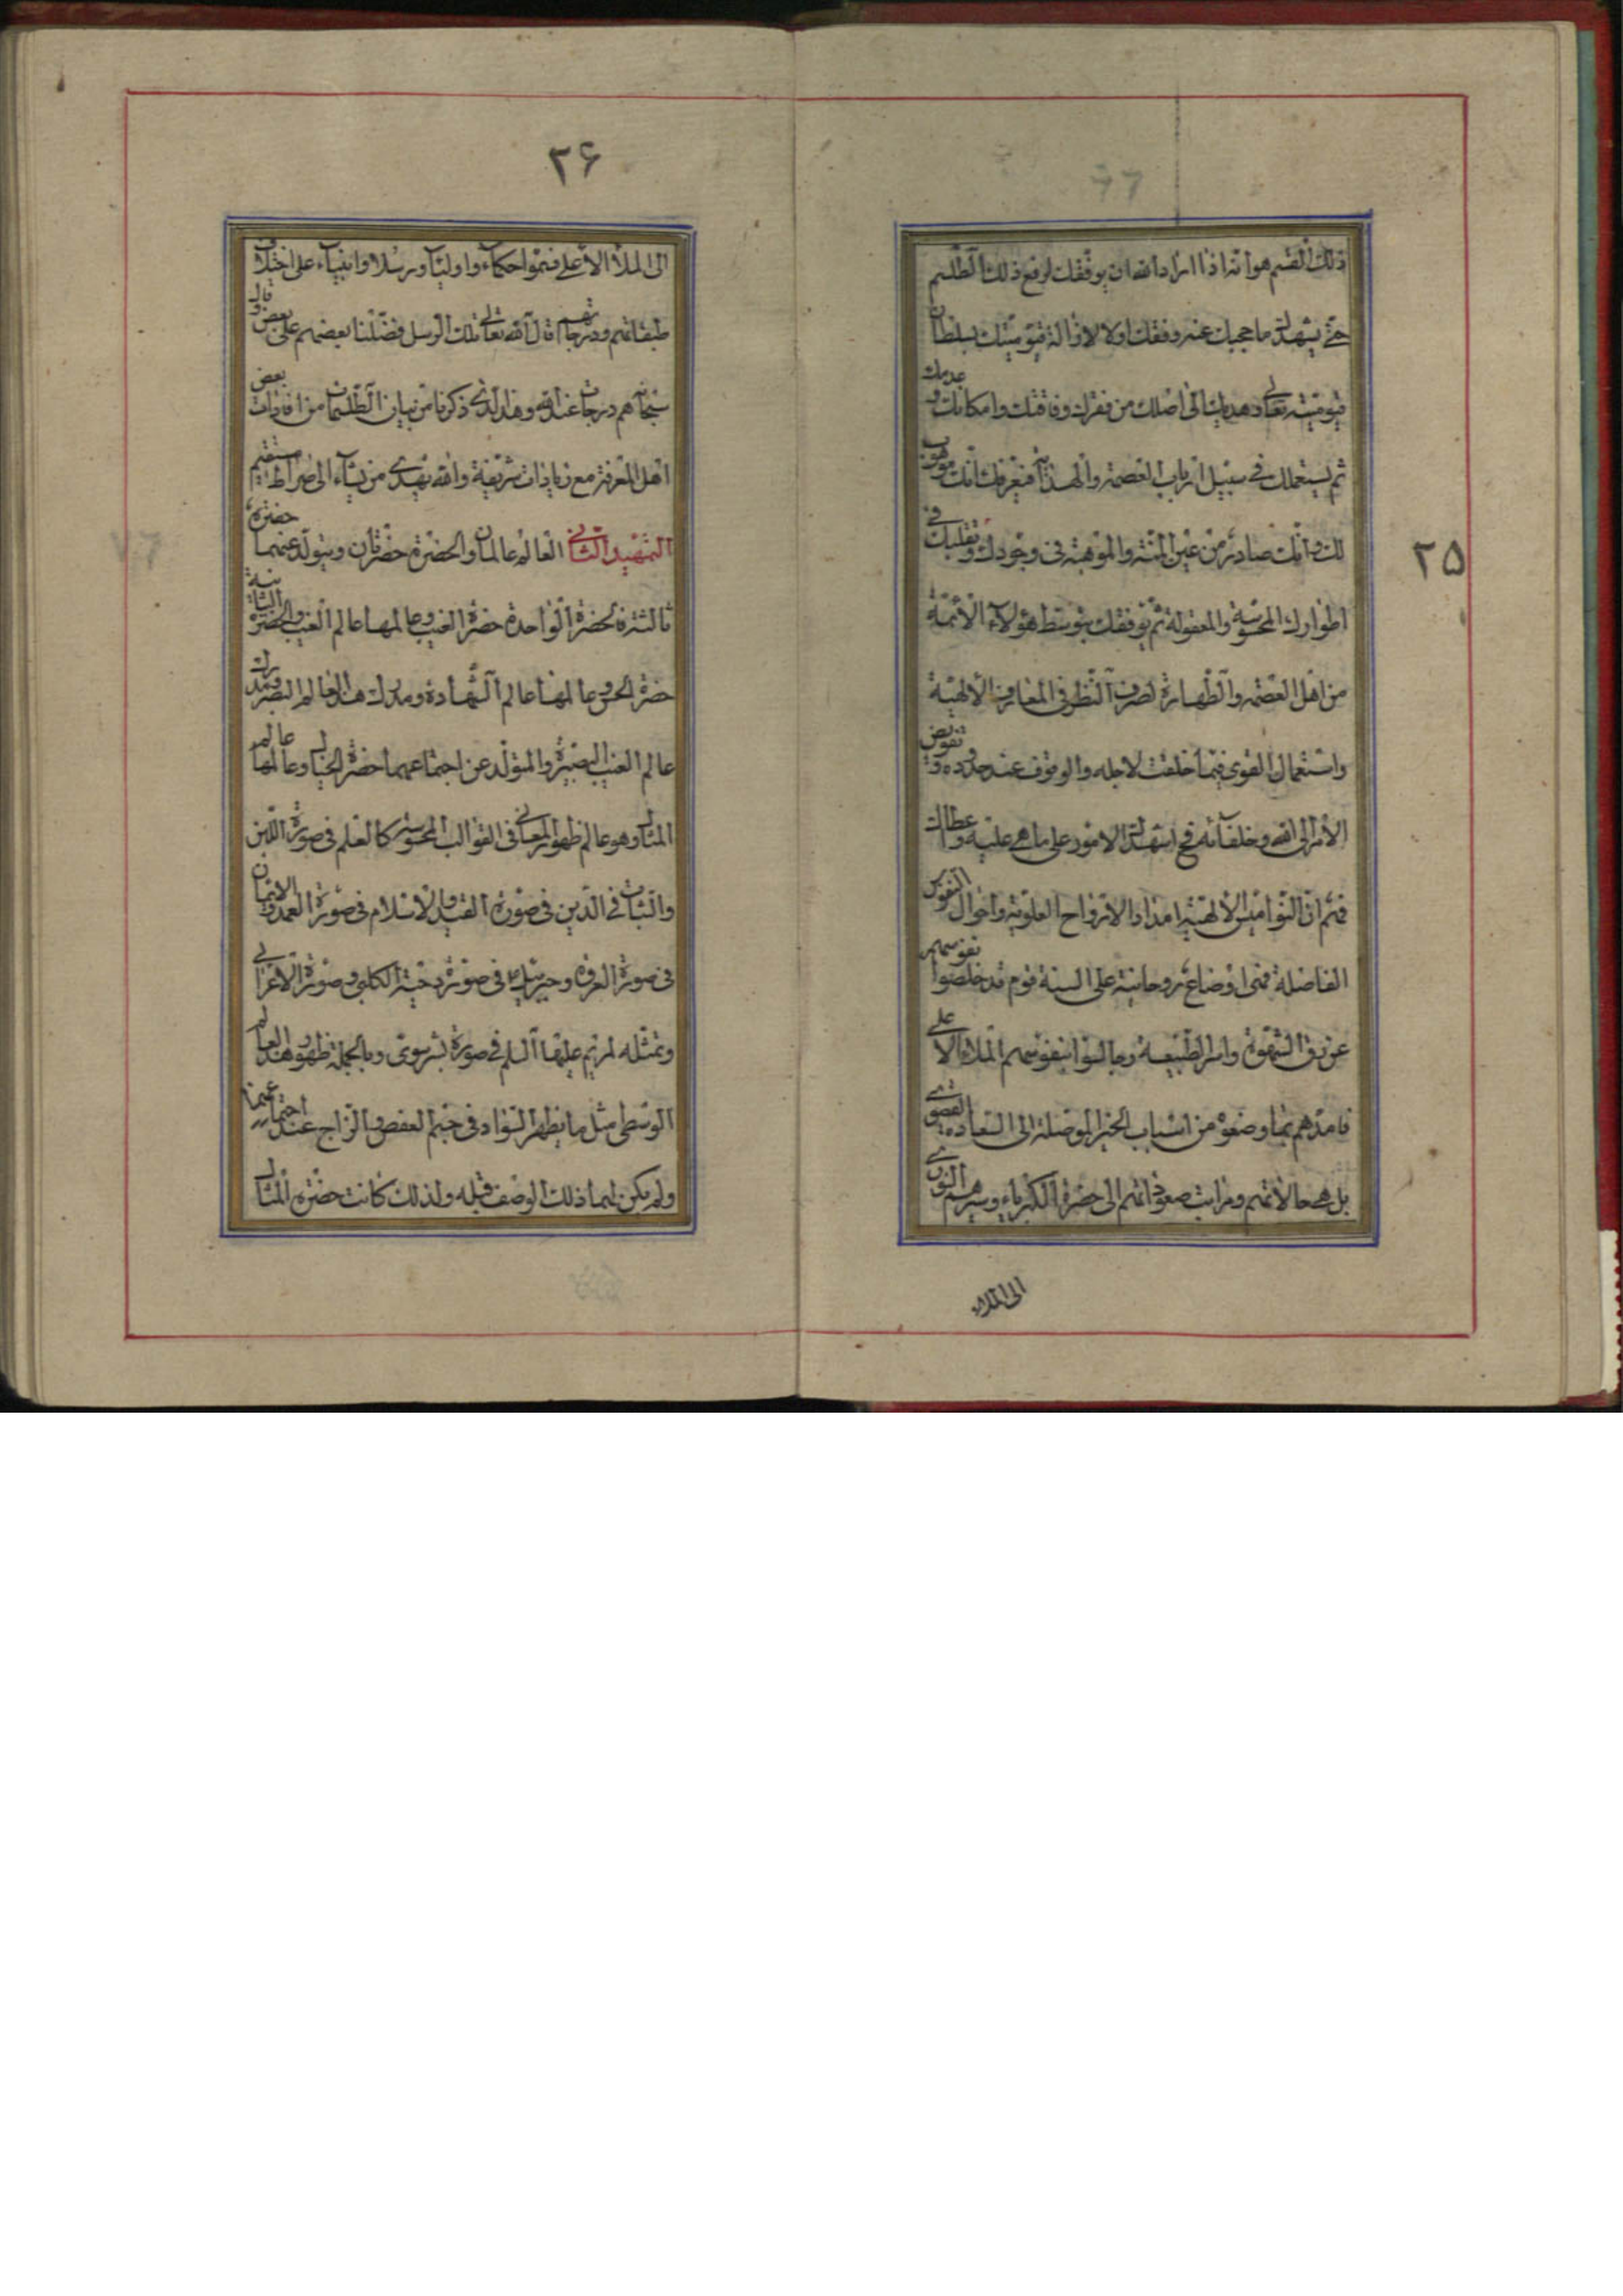 ٢٥
ذلك القسم هو انه اذا اراد الله ان يوفقك لرفع ذلك الطلسم
حتى يشهدك ما حجبك عنه وفقك اولا لازالة قيوميتك بسلطان
قيوميته تعالى وهديك الى اصلك من فقرك وفاقتك وامكانك و عدمك
ثم يستعملك في سبيل ارباب العصمة والهداية فيعرفك انك موهوب
لك وانك صادر من عين المنة والموهبة في وجودك وتقلبك في
اطوارك المحسوسة والمعقولة ثم يوفقك بتوسط هؤلاء الائمة
من اهل العصمة والطهارة لصرف النظر في المعارف الالهية
واستعمال القوى فيما خلقت لاجله والوقوف عند حدوده و تفويض
الامر الى الله وخلفائه فح اشهدك الامور على ما هي عليه وعطاك
فثم ان النواميس الالهية امداد الارواح العلوية واحوال النفوس
الفاضلة فهى اوضاع روحانية على السنة قوم قد خلصوا نفوسهم
عن رق الشهوة واسر الطبيعة وجالسوا بنفوسهم الملاء الا على
فامدهم بما وضعوه من اسباب الخير الموصلة الى السعادة القصوى
بل هي حالاتهم ومراتب صعوداتهم الى حضرة الكبرياء وسيرهم النورى
الى الملاء
٢۶
الى الملأ الاعلى فسموا حكماء واولياء ورسلا وانبياء على اختلاف
طبقاتهم ودرجاتهم قال الله تعالى تلك الرسل فضلنا بعضهم على بعض وقال
سبحانه هم درجات عند الله وهذا الذى ذكرنا من بيان الطلسمات من افادات بعض
اهل المعرفة مع زيادات شريفة والله يهدى من يشاء الى صراط مستقيم
التمهيد الثانى العالم عالمان والحضرة حضرتان ويتولد عنهما حضرة
ثالثة فالحضرة الواحدة حضرة الغيب وعالمها عالم الغيب والحضرة الثانية
حضرة الحس وعالمها عالم الشهادة ومدرك هذا العالم البصر ومدرك
عالم الغيب البصيرة والمتولد عن اجتماعهما حضرة الخيال وعالمها عالم
المثال وهو عالم ظهور المعانى فى القوالب المحسوسة كالعلم فى صورة اللبن
والثبات فى الدين فى صورة القيد والاسلام فى صورة العمد والايمان
فى صورة العروة وجبرئيل ع فى صورة دحية الكلبى و صورة الاعرابى
وتمثله لمريم عليها السلم فى صورة بشر سوى وبالجملة ظهور هذا العالم
الوسطى مثل ما يظهر السواد فى جسم العفص والزاج عند اجتماعهما
ولم يكن لهما ذلك الوصف قبله ولذلك كانت حضرة المثال